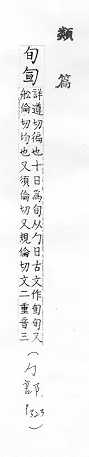 類篇
旬𠣙
詳遵切徧也十日為旬从勹日古文作𠣙旬又
舩倫切均也又須倫切又規倫切文二重音三
(勹部,P323)